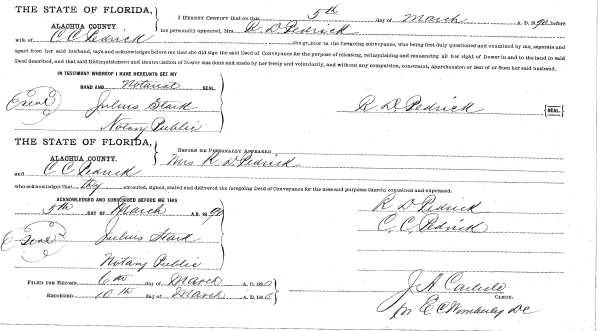 THE STATE OF FLORIDA, I HEREBY CERTIFY that on this 5th day of March A. D. 1890, before
ALACHUA COUNTY. me personally appeared, Mrs. R. D. Pedrick
wife of C C Pedrick the grantor in the foregoing conveyance, who being first duly questioned and examined by me, separate and
apart from her said husband, says and acknowledges before me that she did sign the said Deed of Conveyance for the purpose of releasing, relinquishing and renouncing all her right of Dower in and to the land in said
Deed described, and that said Relinquishment and Renunciation of Dower was done and made by her freely and voluntarily, and without any compulsion, constraint, apprehension or fear of or from her said husband.
IN TESTIMONY WHEREOF I HAVE HEREUNTO SET MY
HAND AND Notarial SEAL.
Seal Julius Stark R. D. Pedrick [SEAL.]
Notary Public
THE STATE OF FLORIDA, BEFORE ME PERSONALLY APPEARED
ALACHUA COUNTY. Mrs R. D. Pedrick
and C C Pedrick
who acknowledges that they executed, signed, sealed and delivered the foregoing Deed of Conveyance for the uses and purposes therein contained and expressed.
ACKNOWLEDGED AND SUBSCRIBED BEFORE ME THIS R D Pedrick
5th DAY OF March A. D. 1890 C. C. Pedrick
Seal Julius Stark
Notary Public
FILED FOR RECORD 6th day of March A. D. 1890 J A Carlisle
RECORDED 10th day of March A. D. 1890 CLERK.
pr E C Wimberly DC